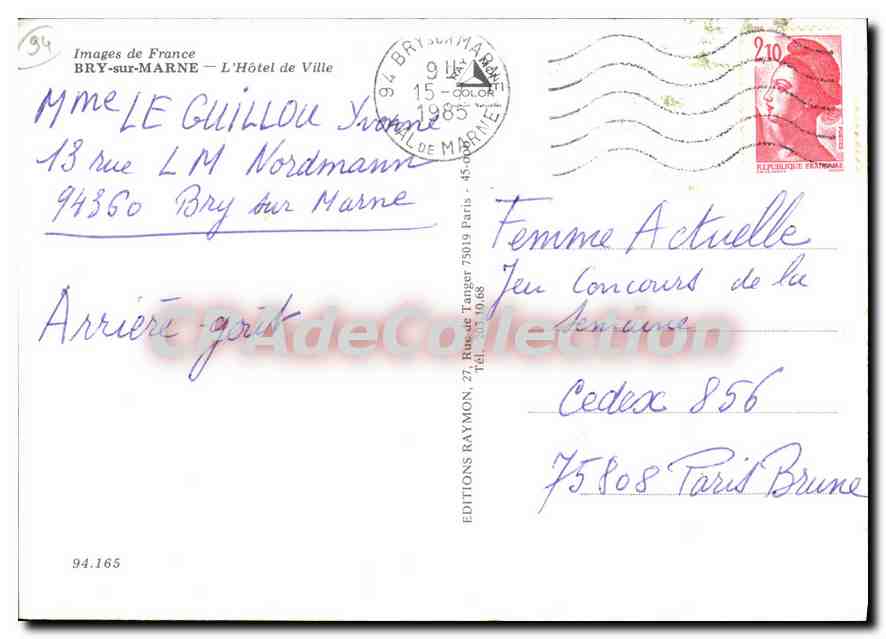 94
Images de France
BRY-sur-MARNE — L'Hôtel de Ville
Mme LE GUILLOU Yvonne
13 rue L M Nordmann
94360 Bry sur Marne
Arrière-goût
94.165
EDITIONS RAYMON, 27, Rue de Tanger 75019 Paris - 45-
Tél. 203.10.68
94 BRY SUR MARNE
15-
1985
VAL DE MARNE
RAYMON
COLOR
2,10
REPUBLIQUE FRANÇAISE
Femme Actuelle
Jeu Concours de la
semaine
Cedex 856
75808 Paris Brune
CPAdeCollection